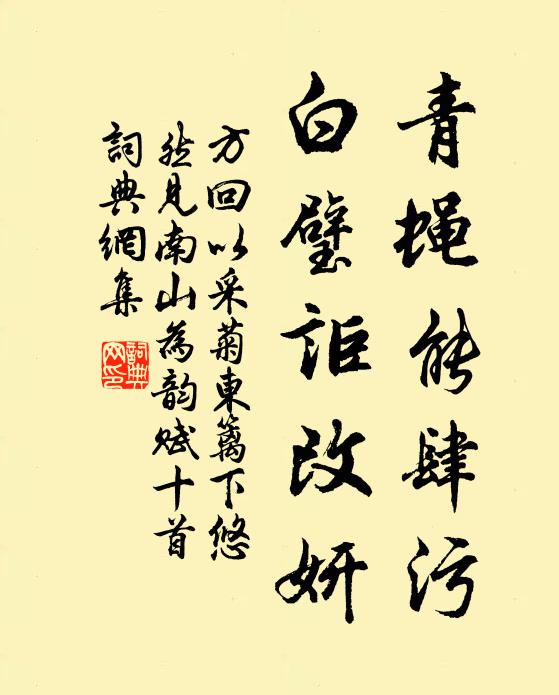 青蝇能肆污
白璧詎改妍
方回以采菊東篱下悠
然見南山為韵赋十首
詞典網集
詞典網印